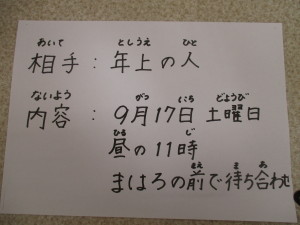 あいて としうえ ひと
相手：年上の人
ないよう がつ いち どようび
内容：9月17日 土曜日
ひる じ
昼の11時
まえ ま あ
まほろの前で待ち合わせ